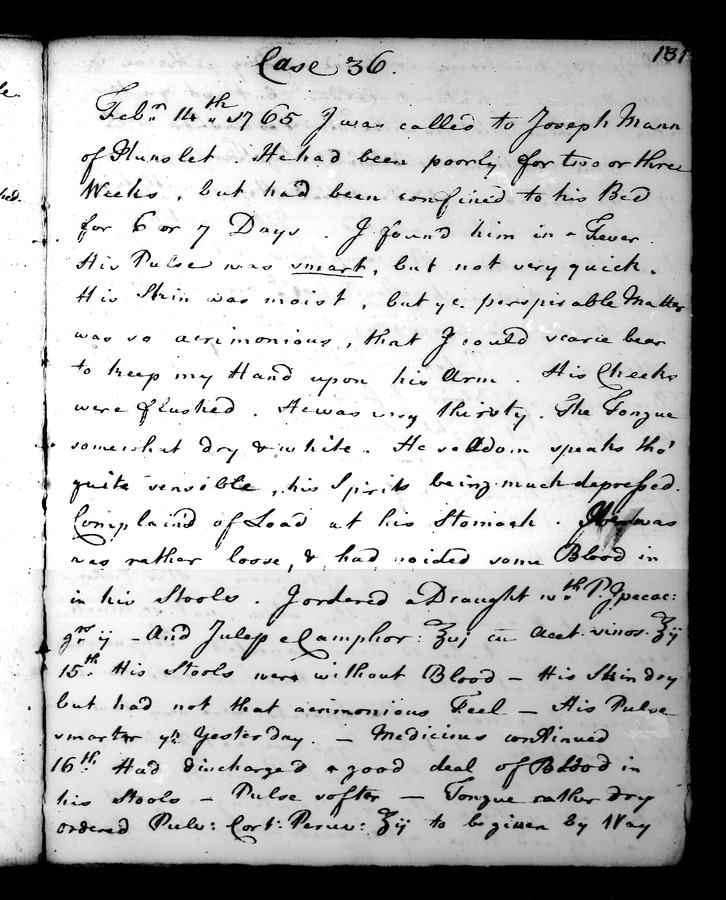 131
Case 36.
Febry. 14th. 1765 I was called to Joseph Mann
of Hunslet. He had been poorly for two or three
Weeks, but had been confined to his Bed
for 6 or 7 Days. I found him in a Fever.
His Pulse was smart, but not very quick.
His Skin was moist, but ye. perspirable Matter
was so acrimonious, that I could scarce bear
to keep my Hand upon his Arm. His Cheeks
were flushed. He was very thirsty. The Tongue
somewhat dry & white. He seldom speaks tho'
quite sensible, his Spirits being much depressed.
Complain'd of Load at his Stomach. was
was rather loose, & had voided some Blood in
in his Stools. I ordered a Draught wth. P. Ipecac:
grs ij - And Julep e Camphor: ℥vj cu Acet. vinos. ℥ij
15th. His Stools were without Blood - His Skin dry
but had not that acrimonious Feel - His Pulse
smarter yn. Yesterday. - Medicines continued
16th. Had discharged a good deal of Blood in
his Stools - Pulse softer - Tongue rather dry
ordered Pulv: Cort: Peruv: ℥ij to be given by Way